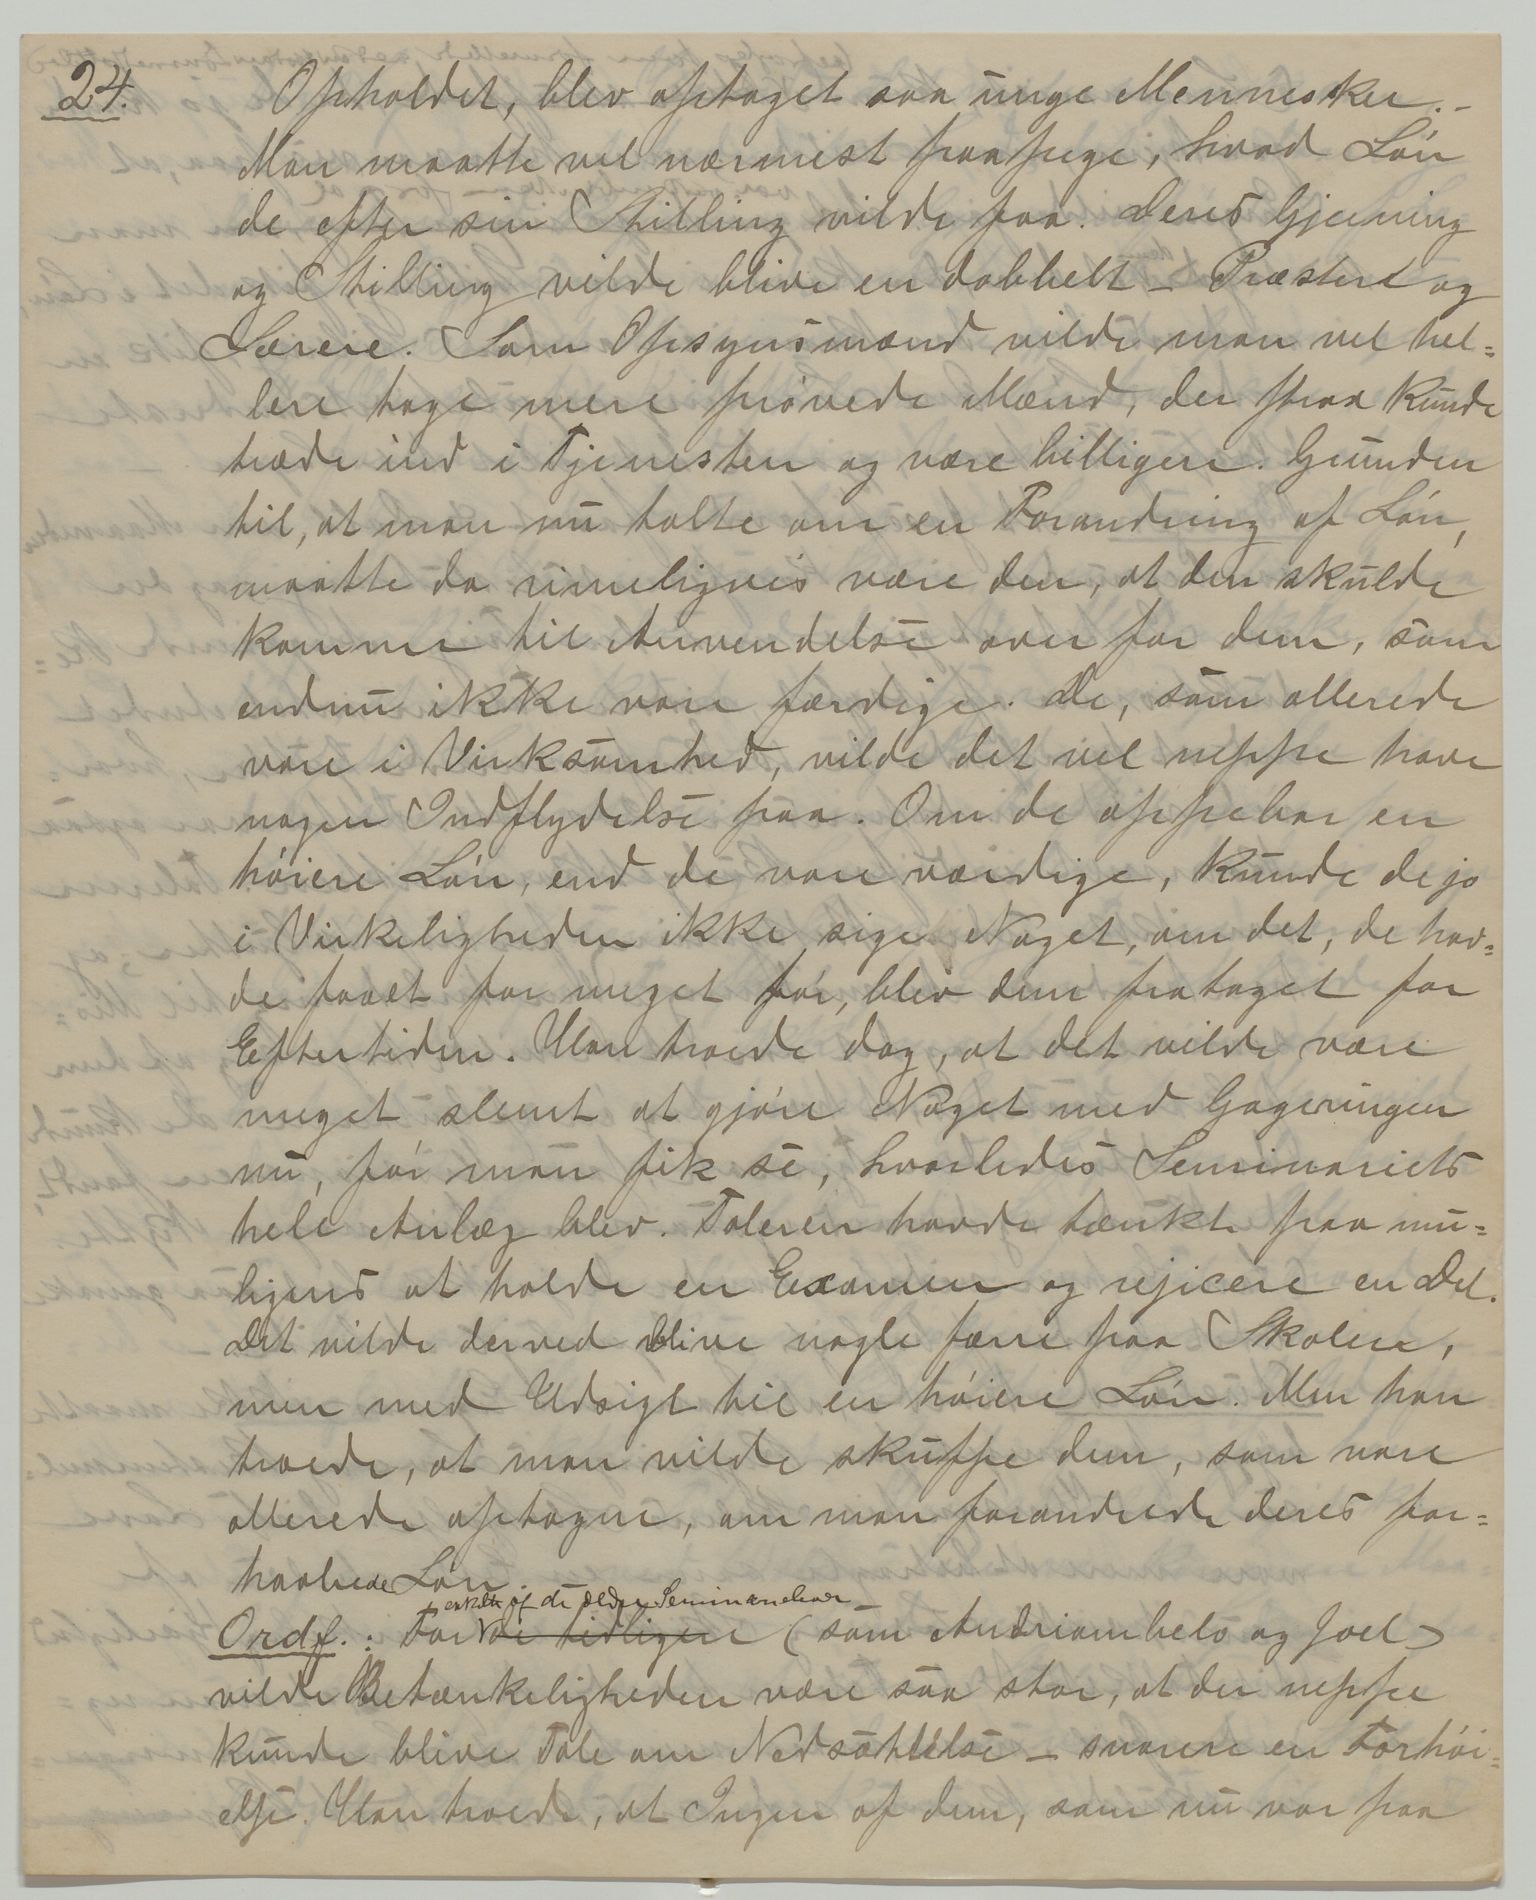 24.
Opholdet, blev optaget saa unge Mennesker. -
Man maatte vel nærmest paapege, hvad Løn
de efter sin Stilling vilde faa. Deres Gjerning
og Stilling vilde blive en dobbelt - Præstens og
Lærere. Som Opsynsmænd vilde man vel hel=
lere tage mere prøvede Mænd, der strax kunde
træde ind i Tjenesten og være billigere. Grunden
til, at man nu talte om en Forandring af Løn,
maatte da rimeligvis være den, at den skulde
komme til Anvendelse over for dem, som
endnu ikke vare færdige. De, som allerede
vare i Virksomhed, vilde det vel neppe have
nogen Indflydelse paa. Om de oppebar en
høiere Løn, end de vare værdige, kunde de jo
i Virkeligheden ikke sige Noget, om det, de hav=
de faaet for meget før, blev dem frataget for
Eftertiden. Man troede dog, at det vilde være
meget slemt at gjøre Noget med Gageringen
nu, før man fik se, hvorledes Seminariets
hele Anlæg blev. Taleren havde tænkt paa mu=
ligens at holde en Examen og rejicere en Del.
Det vilde derved blive nogle færre paa Skolen,
men med Udsigt til en høiere Løn. Men han
troede, at man vilde skuffe dem, som vare
allerede optagne, om man forandrede deres for=
haabede Løn.
enkelte af de ældre Seminarelever
Ordf.: For de tidligere (som Andriambelo og Joel)
vilde Betænkeligheden være saa stor, at der neppe
kunde blive Tale om Nedsættelse - snarere en Forhøi=
else. Man troede, at Ingen af dem, som nu var paa